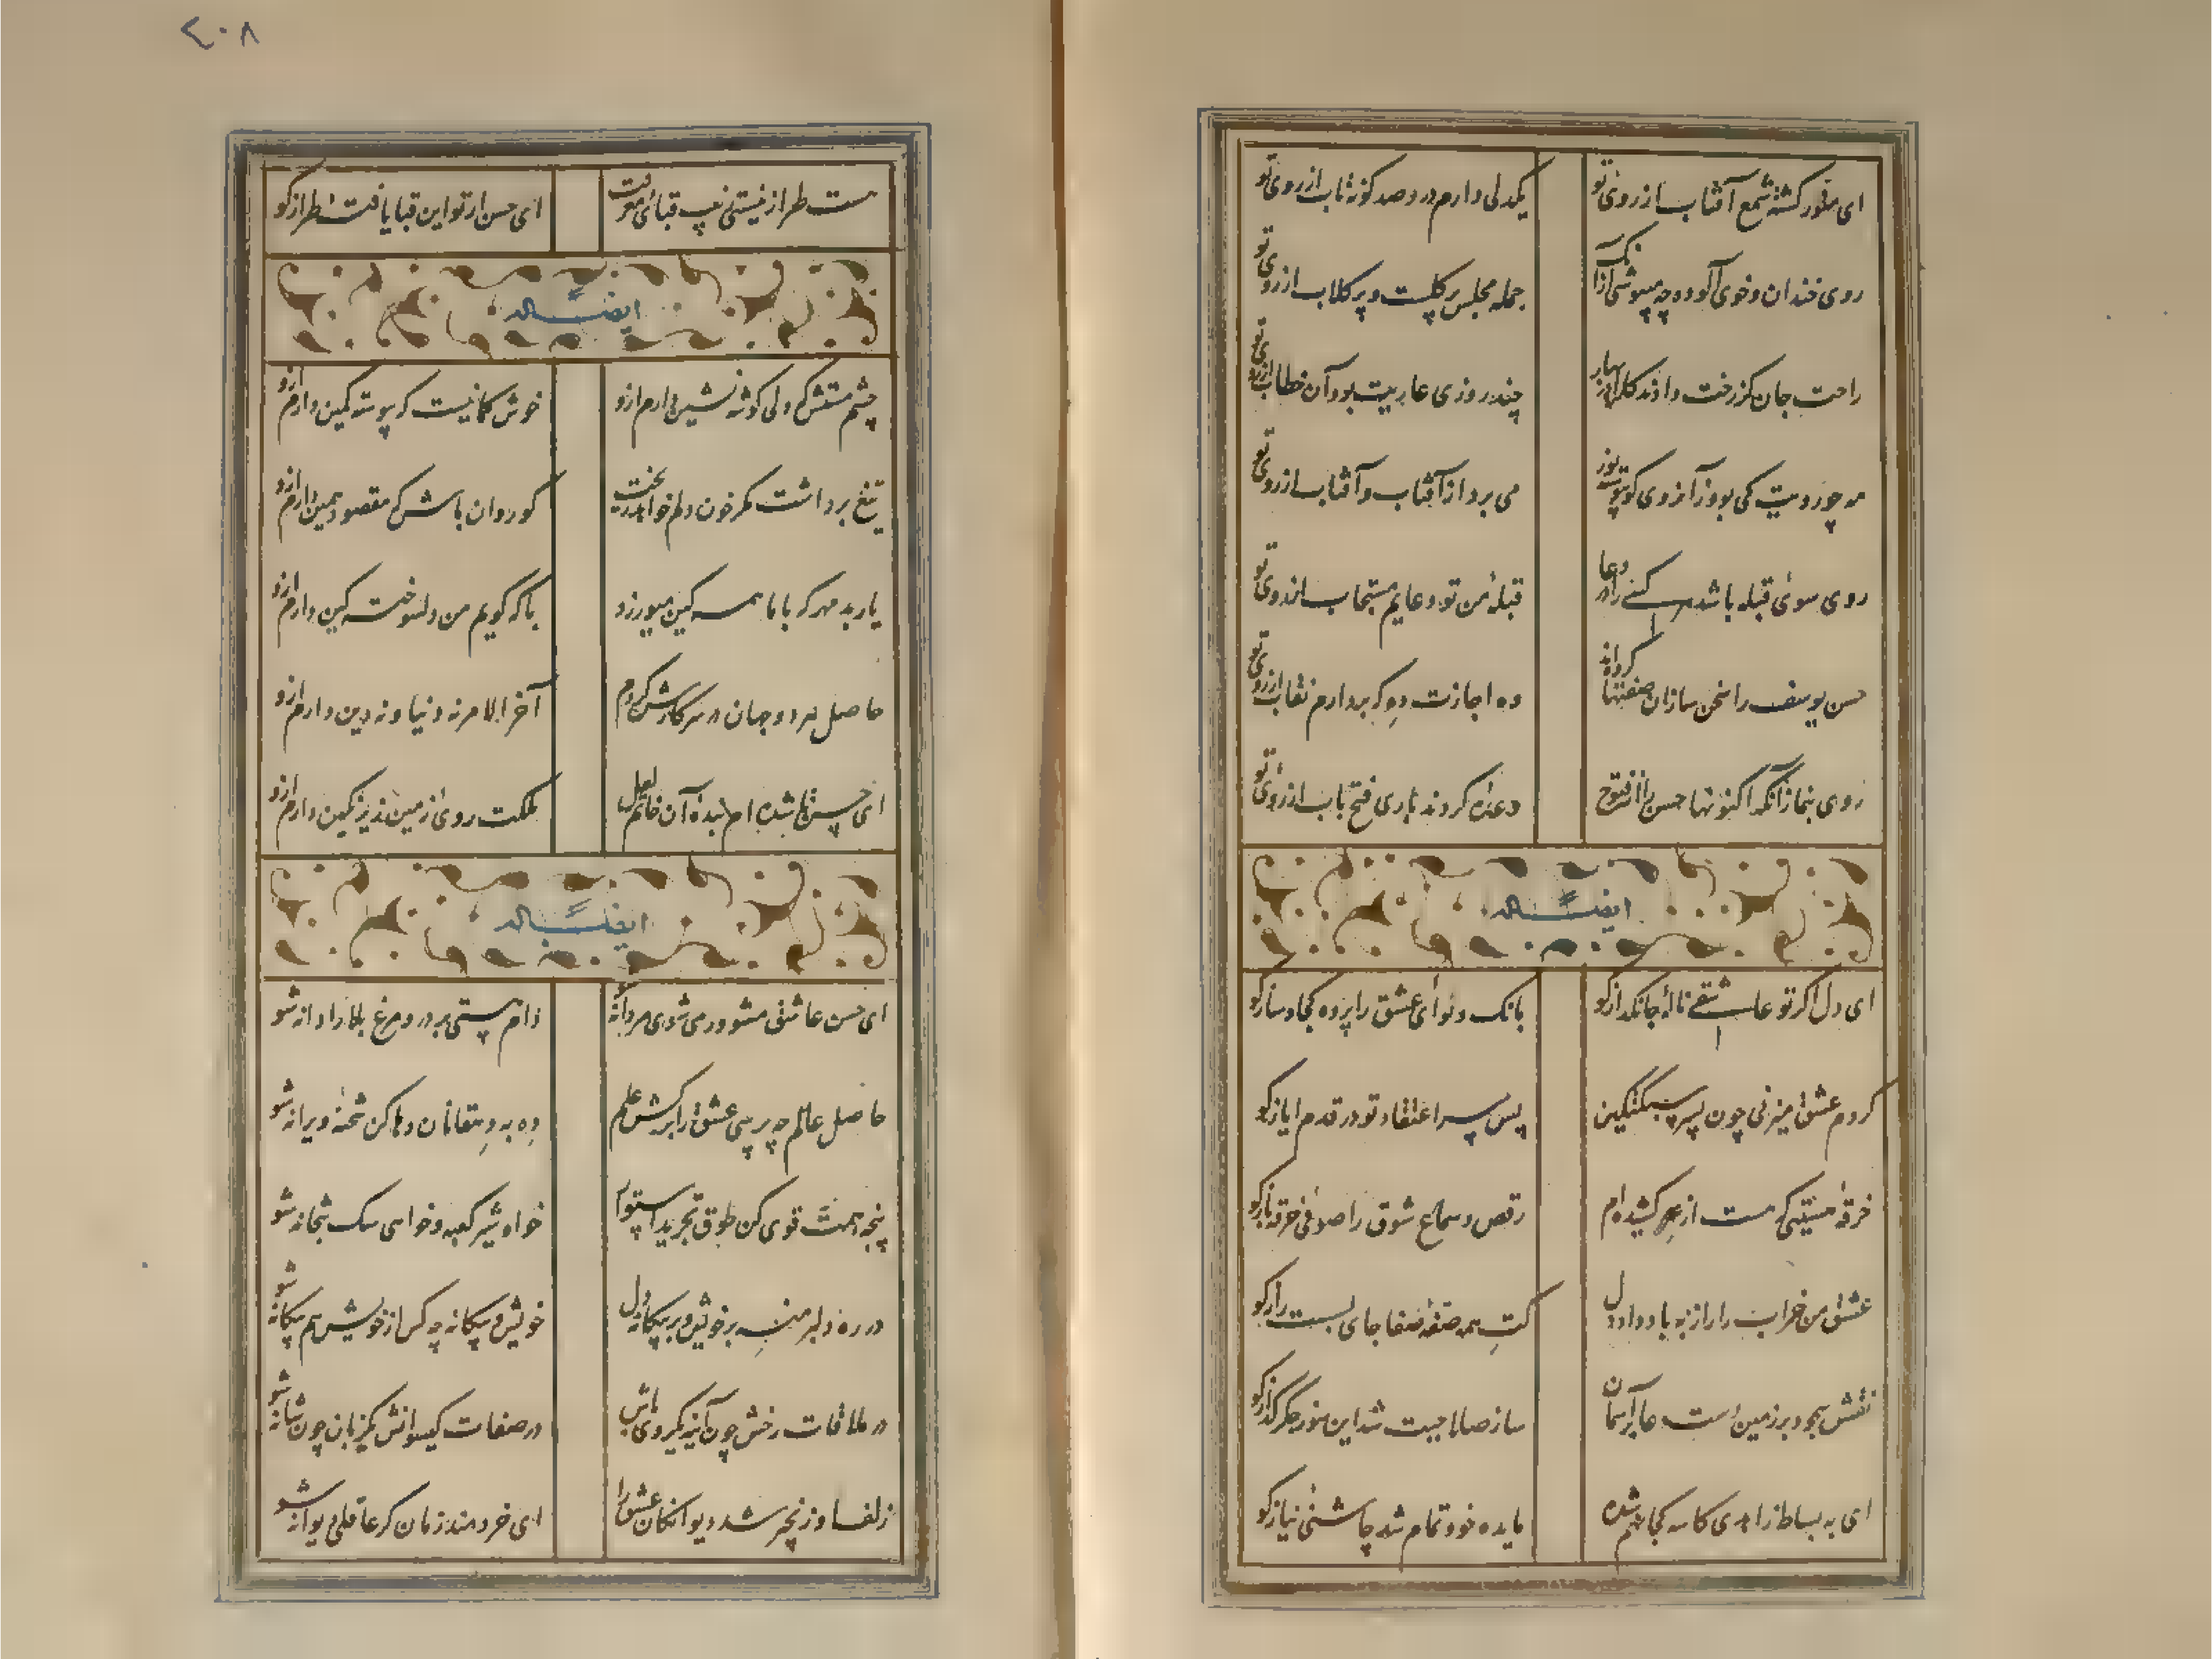 ای منور گشته شمع آفتاب از روی تو
یکدلی دارم درو صد گونه تاب از روی تو
روی خندان و خوی آلوده چه میپوشی از آنک
جمله مجلس پر گلست و پر گلاب از روی تو
راحت جان کز رخت دادند گلزار بهار
چند روزی عاریت بود آن خطاب از روی تو
مه چو رویت کی بود زآنروی کو پیوسته نور
می برد از آفتاب و آفتاب از روی تو
روی سوی قبله باشد هر کسی را در دعا
قبلهٔ من تو دعایم مستجاب از روی تو
حسن یوسف را سخن سازان صفتها کرده اند
ده اجازت دوکه بردارم نقاب از روی تو
روی بنما زآنکه اکنونها حسن را از فتوح
وعده کردند باری فتح باب از روی تو
ایضاً له
ای دل اگر تو عاشقی نالهٔ جانگداز کو
بانگ و نوای عشق را پرده کجا و ساز کو
کر دم عشق میزنی چون پسر سبکتکین
پس سر اعتقاد تو در قدم ایاز کو
خرقهٔ هستیی که هست از کشیده ام
رقص و سماع شوق را صوفی خرقه باز کو
عشق من خراب را راز به باد داد دل
کت همه صفهٔ صفا جای بست راز کو
نقش سجود بر زمین است عا بر آسمان
ساز صلاحیت شد این سوز جگر گداز کو
ای به بساط زاهدی کاسه کجا نهم شده
مایده خود تمام شد چاشنی نیاز کو
هست طراز نیستی زیب قبای معرفت
ای حسن ار تو این قبا یافتهٔ طراز کو
ایضاً له
چشم مستش که دلی گوشه نشین دارم ازو
خوش کمانیست که پیوسته کمین دارم ازو
تیغ برداشت مگر خون دلم خواهد ریخت
گو روان باش که مقصود همین دارم ازو
یار بد مهر که با ما همه کین میورزد
با که گویم من دلسوخته کین دارم ازو
حاصل هر دو جهان در سر کارش کردم
آخر الامر نه دنیا و نه دین دارم ازو
ای حسن تا شده ام بنده آن خاتم لعل
ملکت روی زمین زیر نگین دارم ازو
ایضاً له
ای حسن عاشق مشو ور می شوی مردانه شو
دام هستی بر در و مرغ بلا را دانه شو
حاصل عالم چه پرسی عشق را برکش علم
ده به دهقانان رها کن شحنهٔ ویرانه شو
پنجه همت قوی کن طوق تجرید استوار
خواه شیر کعبه و خواهی سگ بتخانه شو
در ره دلبر منه بر خویش و بر بیگانه دل
خویش و بیگانه چه کس از خویش هم بیگانه شو
در ملاقات رخش چون آینه یکروی باش
در صفات گیسوانش یکزبان چون شانه شو
زلف او زنجیر شد دیوانگان عشق را
ای خردمند زمان گر عاقلی دیوانه شو
۲۰۸